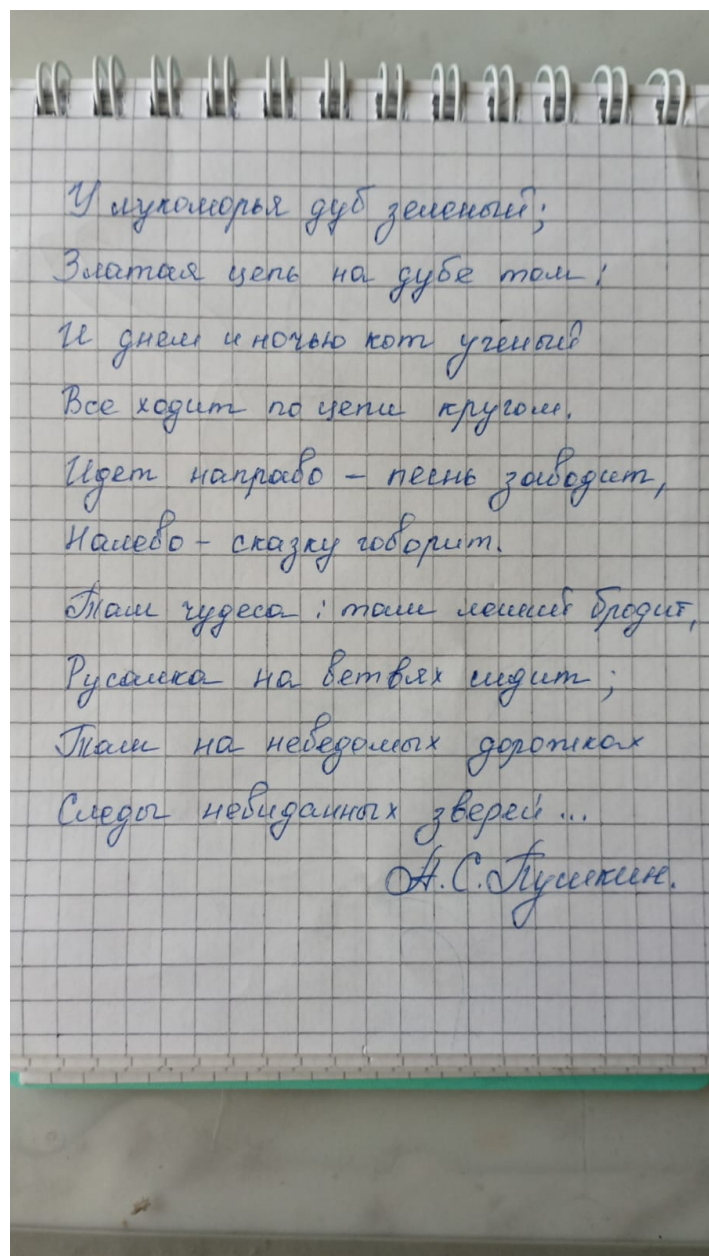 У лукоморья дуб зеленый;
Златая цепь на дубе том:
И днем и ночью кот ученый
Все ходит по цепи кругом.
Идет направо - песнь заводит,
Налево - сказку говорит.
Там чудеса: там леший бродит,
Русалка на ветвях сидит;
Там на неведомых дорожках
Следы невиданных зверей...
А.С.Пушкин.